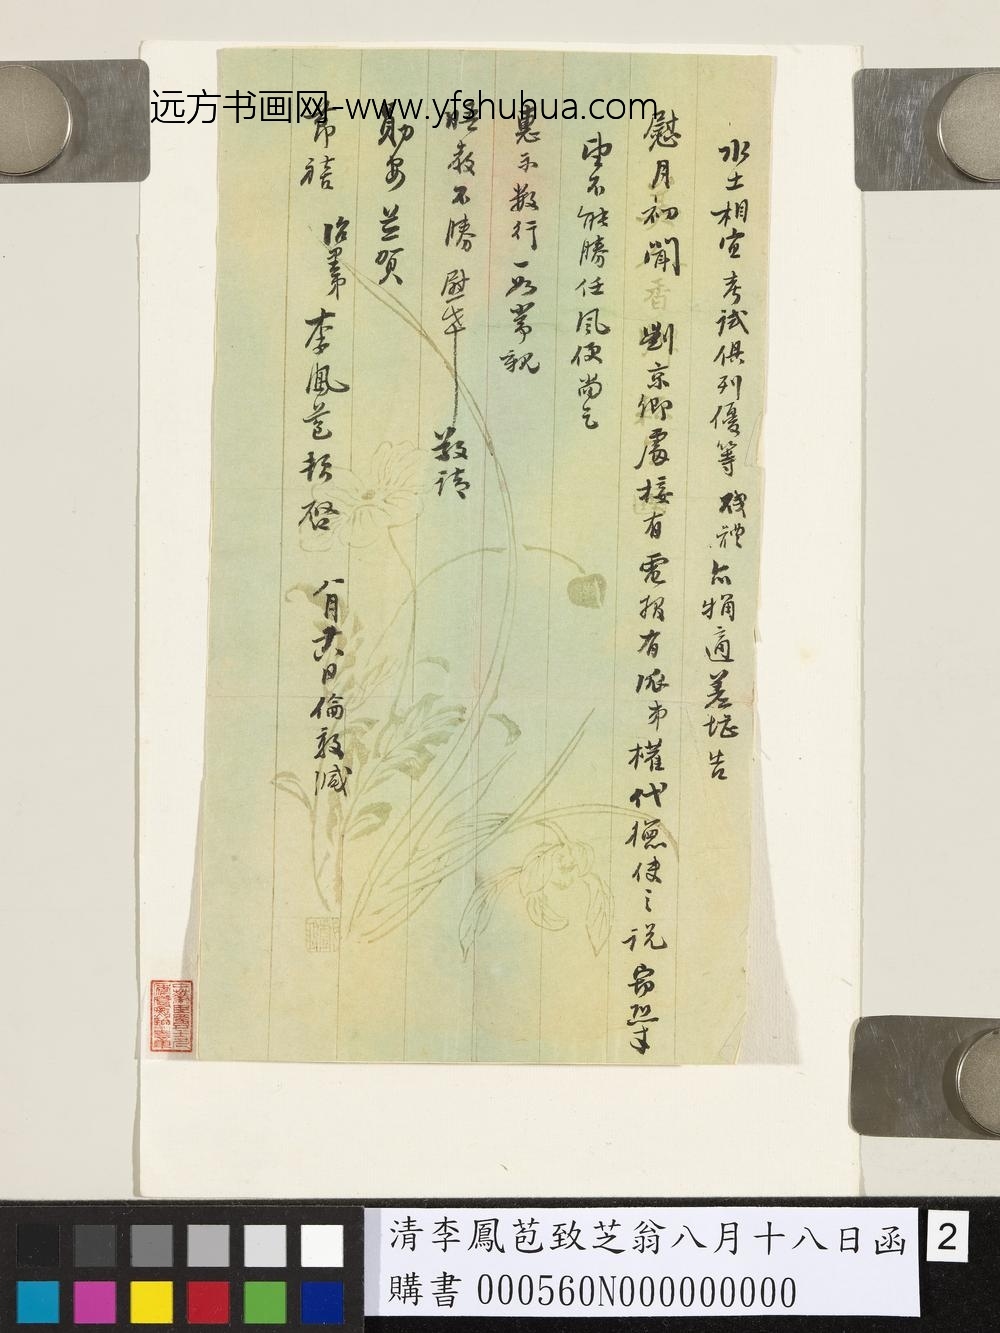 远方书画网-www.yfshuhua.com
水土相宜考試俱列優等 賤體亦稱適差堪告
慰月初聞劉京卿處接有電報有派弟權代
使之说
望不能勝任風便尚乞
惠示數行一如常親
教不勝 敬請
勛安並賀
節禧 李鳳苞頓啓 八月十八日倫敦緘
清李鳳苞致芝翁八月十八日函
購書 000560N000000000
2